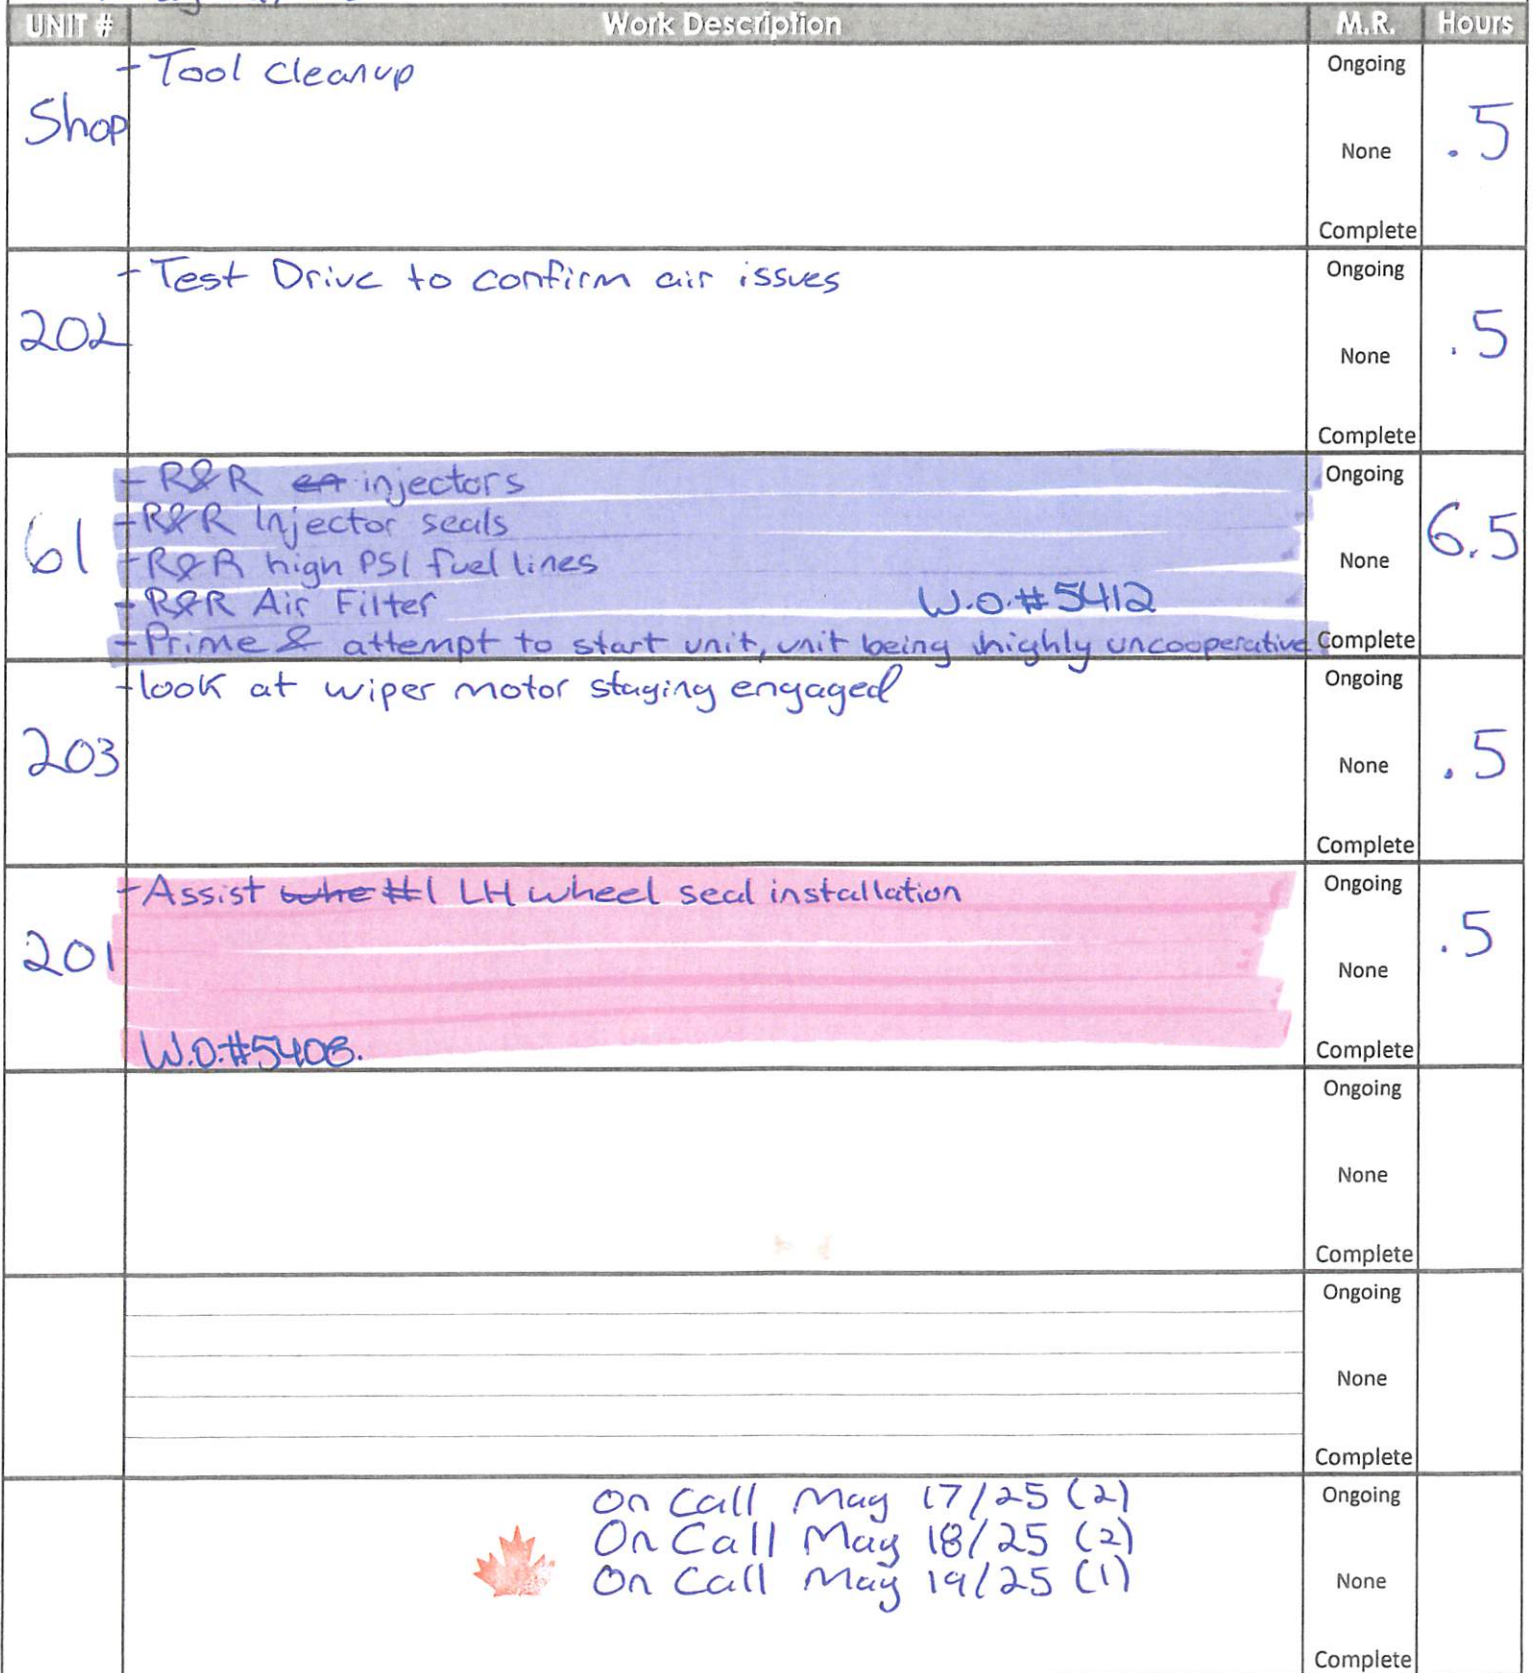 UNIT # Work Description M.R. Hours
Shop - Tool cleanup Ongoing None Complete .5
202 - Test Drive to confirm air issues Ongoing None Complete .5
61 - R&R injectors Ongoing None Complete 6.5
- R&R Injector seals
- R&R high PSI fuel lines
- R&R Air Filter W.O.#5412
- Prime & attempt to start unit, unit being highly uncooperative
203 - look at wiper motor staying engaged Ongoing None Complete .5
201 - Assist #1 LH wheel seal installation Ongoing None Complete .5
W.O.#5408.
Ongoing
None
Complete
Ongoing
None
Complete
On Call May 17/25 (2) Ongoing
On Call May 18/25 (2)
On Call May 19/25 (1) None
Complete